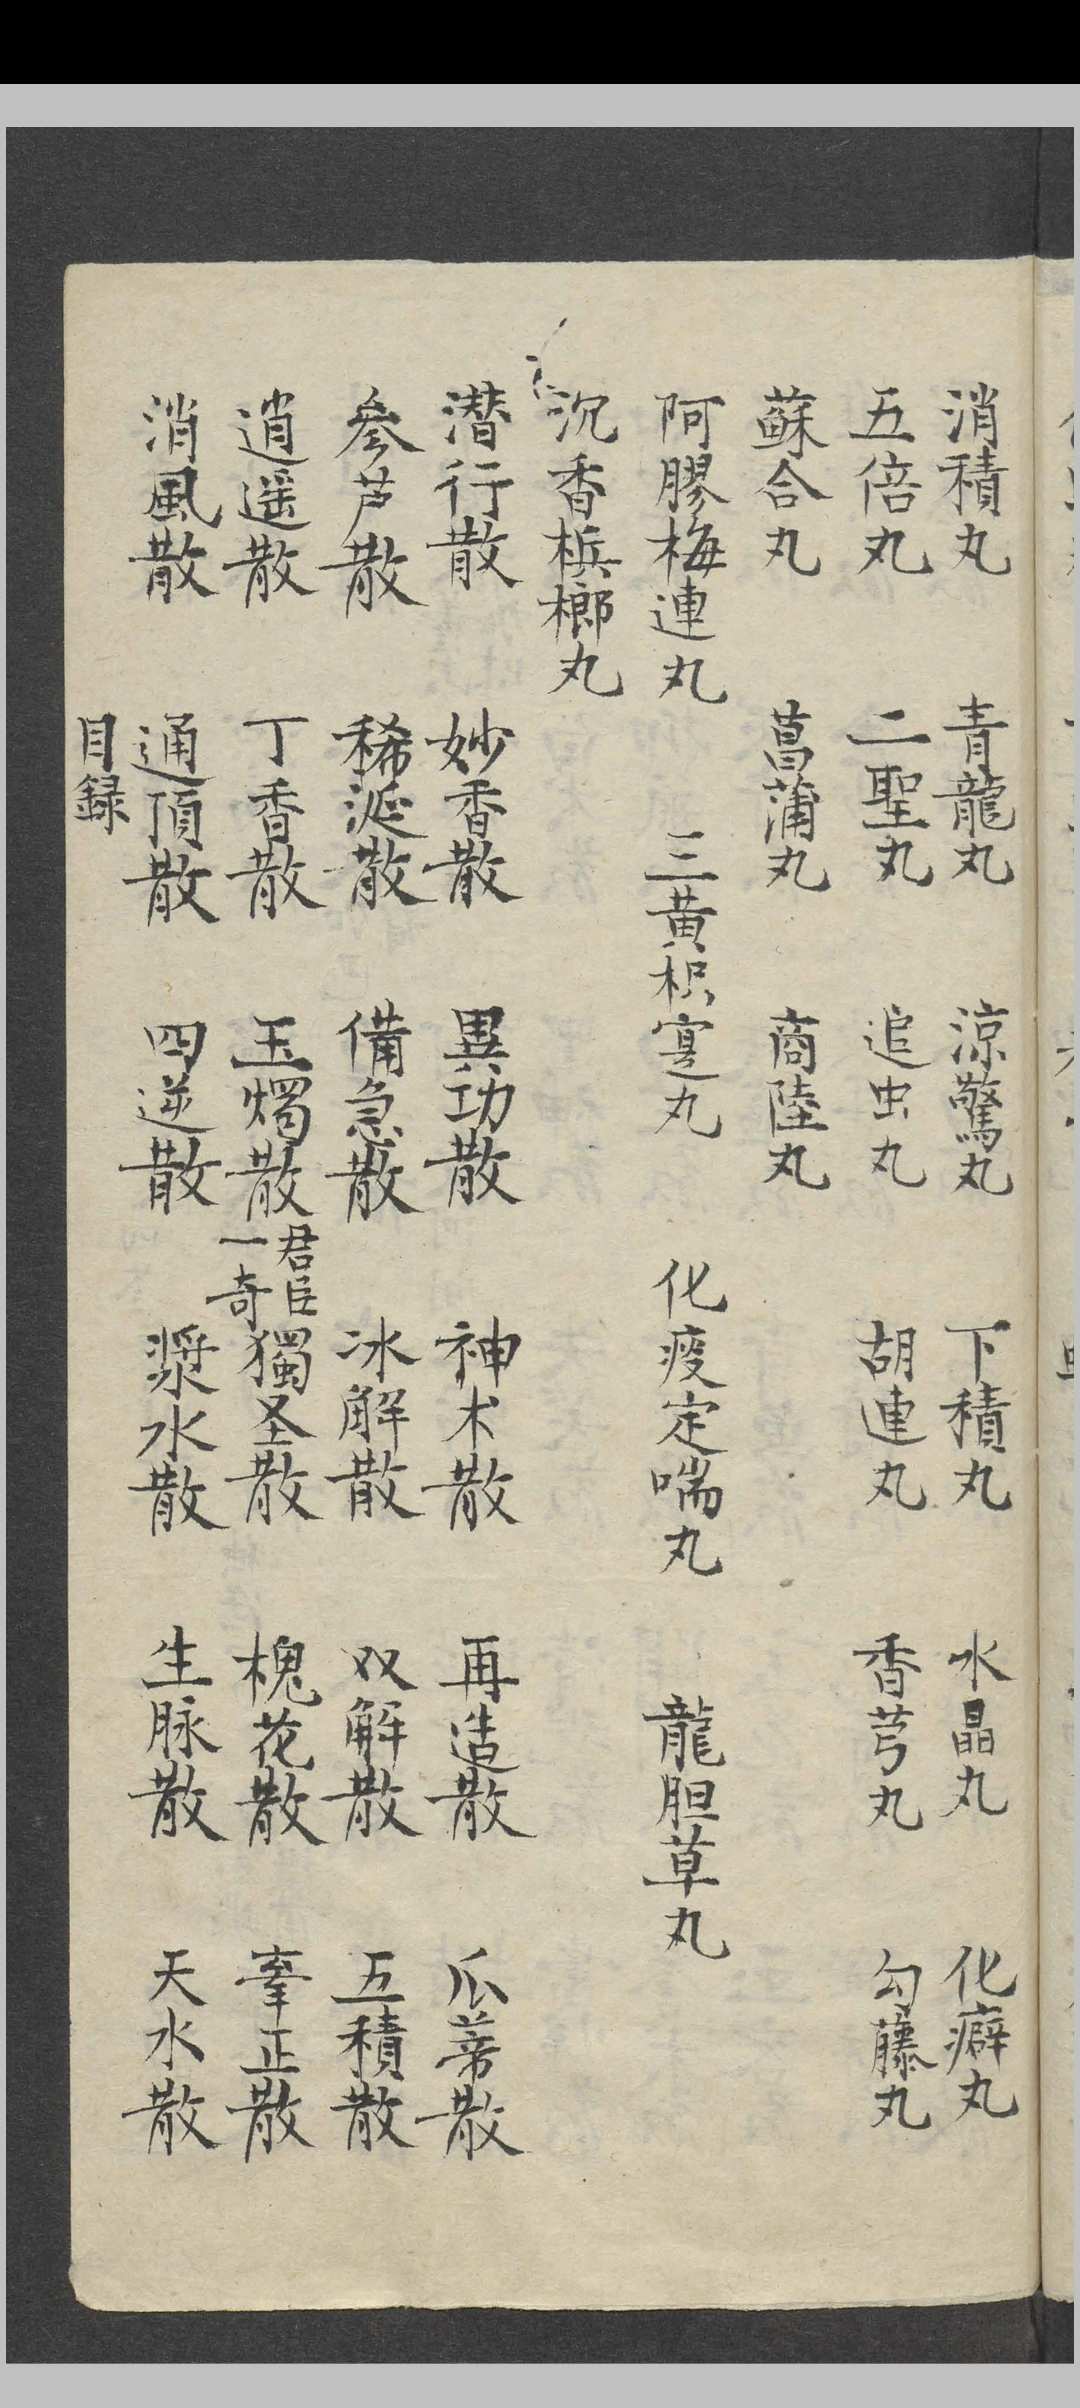 消積丸 青龍丸 涼驚丸 下積丸 水晶丸 化癖丸
五倍丸 二聖丸 追虫丸 胡連丸 香芎丸 勾藤丸
蘇合丸 菖蒲丸 商陸丸
阿膠梅連丸 三黄枳寔丸 化痰定喘丸 龍胆草丸
沉香梹榔丸
潜行散 妙香散 異功散 神术散 再造散 瓜蒂散
参芦散 稀涎散 備急散 冰解散 双解散 五積散
逍遥散 丁香散 玉燭散 君臣一奇 獨圣散 槐花散 牽正散
消風散 通頂散 四逆散 漿水散 生脉散 天水散
目録